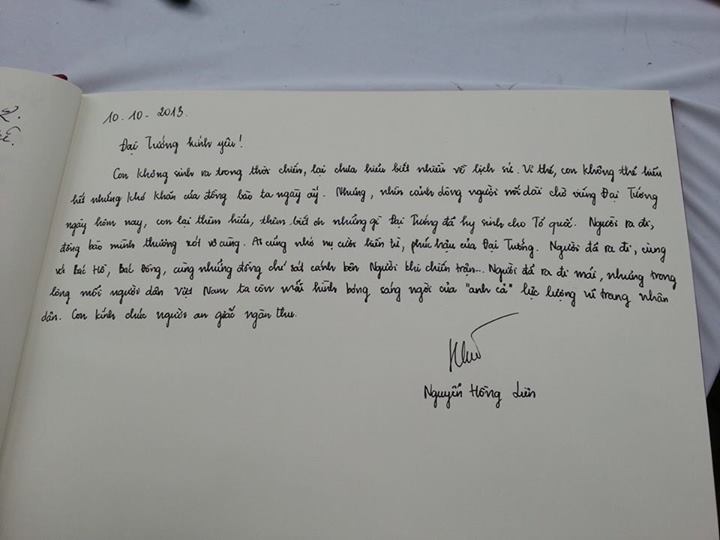 10.10.2013.
Đại Tướng kính yêu!
Con không sinh ra trong thời chiến, lại chưa hiểu biết nhiều về lịch sử. Vì thế, con không thể hiểu
hết những khó khăn của đồng bào ta ngày ấy. Nhưng, nhìn cảnh dòng người nối dài chờ viếng Đại Tướng
ngày hôm nay, con lại thêm hiểu, thêm biết ơn những gì Đại Tướng đã hy sinh cho Tổ quốc. Người ra đi,
đồng bào mình thương xót vô cùng. Ai cũng nhớ nụ cười hiền từ, phúc hậu của Đại Tướng. Người đã ra đi, cùng
với Bác Hồ, Bác Đồng, cùng những đồng chí sát cánh bên Người khi chiến trận... Người đã ra đi mãi, nhưng trong
lòng mỗi người dân Việt Nam ta còn mãi hình bóng sáng ngời của "anh cả" lực lượng vũ trang nhân
dân. Con kính chúc người an giấc ngàn thu.
Nguyễn Hồng Liên